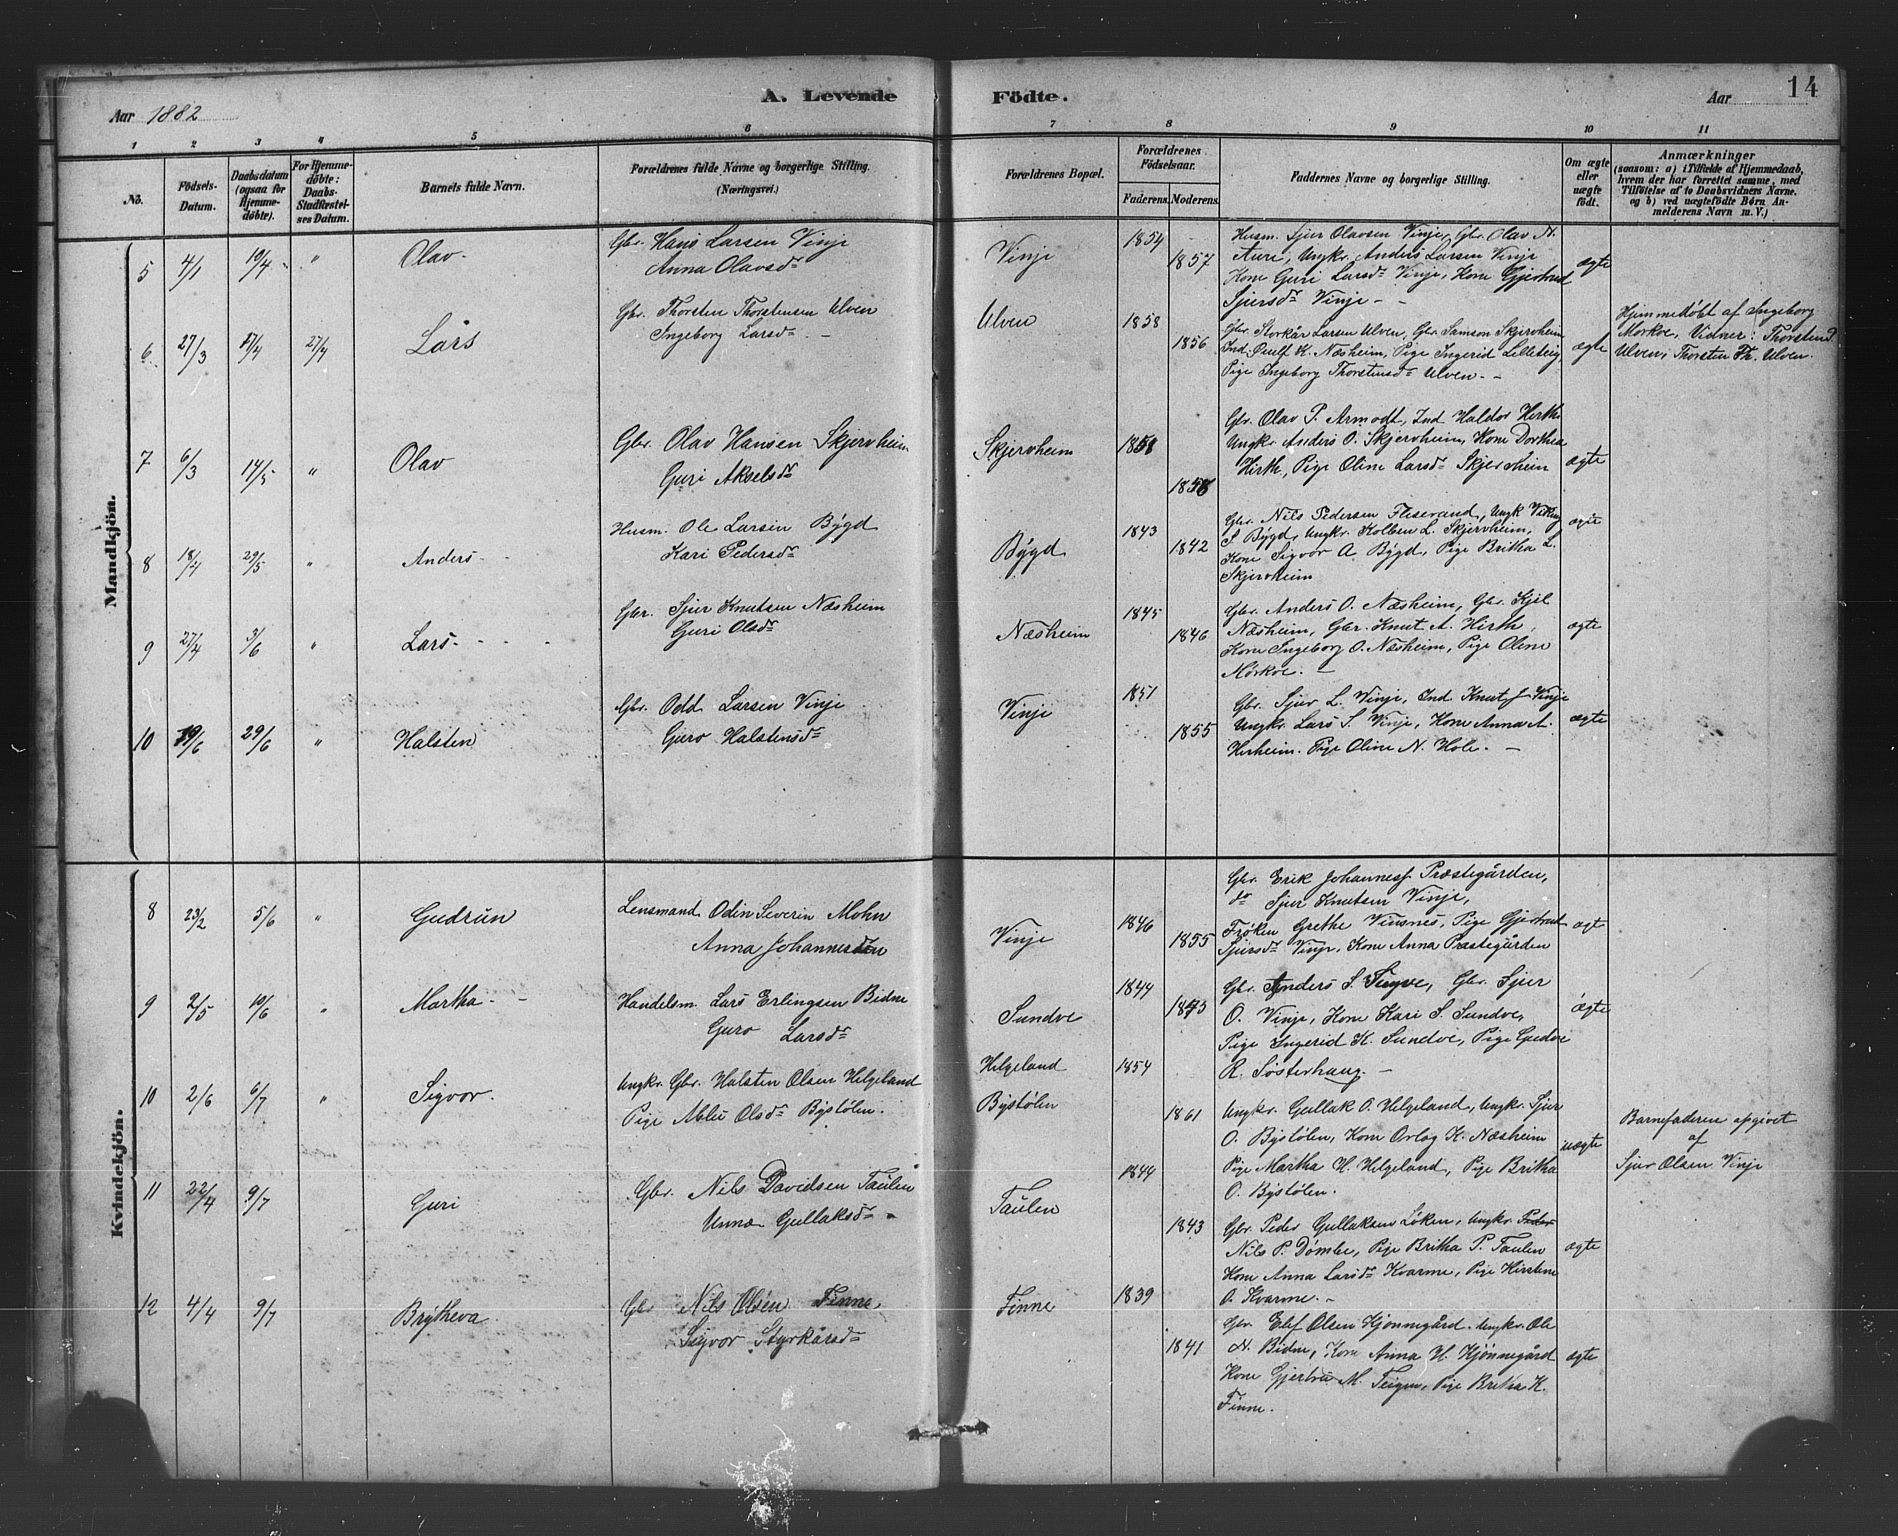 Aar 1882
A. Levende
Födte.
Aar
14
1 2 3 4 5 6 7 8 9 10 11
No.
Födsels-
Datum.
Daabsdatum
(ogsaa for
Hjemme-
döbte).
For Hjemme-
döbte:
Daabs-
Stadfæstel-
ses Datum.
Barnets fulde Navn.
Forældrenes fulde Navne og borgerlige Stilling.
(Næringsvei.)
Forældrenes Bopæl.
Forældrenes
Födselsaar.
Faderens. Moderens.
Faddernes Navne og borgerlige Stilling.
Om ægte
eller
uægte
födt.
Anmærkninger
(saasom: a) i Tilfælde af Hjemmedaab,
hvem der har forrettet samme, med
Tilföielse af to Daabsvidners Navne,
og b) ved uægtefödte Börn An-
melderens Navn m. V.)
Mandkjön.
5 4/1 10/4 " Olav
Gbr. Hans Larsen Vinje
Anna Olavsdr
Vinje 1854
1857
Husm. Sjur Olavsen Vinje, Gbr. Olav N.
Aure, Ungkr. Anders Larsen Vinje
Kone Guri Larsdr Vinje, Kone Gjertrud
Sjursdr Vinje
ægte
6 27/3 17/4 27/4 Lars
Gbr. Thorsten Thorstensen Ulven
Ingeborg Larsdr
Ulven 1858
1856
Gbr. Storkår Larsen Ulven, Gbr. Samson Skjervheim
Ind. K. Næsheim, Pige Ingerid Lilleteig,
Pige Ingeborg Thorstensdr Ulven.
ægte
Hjemmedöbt af Ingeborg
Morkve, Vidner: Thorsten
Ulven, Thorsten Th. Ulven.
7 6/3 14/5 " Olav
Gbr. Olav Hansen Skjervheim
Guri Akselsdr
Skjervheim 1851
1858
Gbr. Olav P. Armodt, Ind Haldor Hirth
Ungkr. Anders O. Skjervheim, Kone Dorthea
Hirth, Pige Oline Larsdr Skjervheim
ægte
8 18/4 29/5 " Anders
Husm. Ole Larsen Bygd
Kari Pedersdr
Bygd 1843
1842
Gbr. Nils Pedersen Fliserand, Ungk Viking
S. Bygd, Ungkr. Kolben L. Skjervheim,
Kone Sigvor A. Bygd, Pige Britha L.
Skjervheim
ægte
9 27/4 3/6 " Lars
Gbr. Sjur Knutsen Næsheim
Guri Olsdr
Næsheim 1845
1846
Gbr. Anders O. Næsheim, Gbr. Kjel
Næsheim, Gbr. Knut A. Hirth,
Kone Ingeborg O. Næsheim, Pige Oline
Mørkve.
ægte
10 19/6 29/6 " Halsten
Gbr. Odd Larsen Vinje
Guro Halstensdr
Vinje 1851
1855
Gbr. Sjur L. Vinje, Ind. Knut J. Vinje
Ungkr. Lars S. Vinje, Kone Anna A.
Herheim. Pige Oline N. Hole.
ægte
Kvindekjön.
8 23/2 5/6 " Gudrun
Lensmand Odin Severin Mohn
Anna Johannesdr
Vinje 1846
1855
Gbr. Erik Johannesf Præstegården,
do Sjur Knutsen Vinje,
Frøken Grethe Vinsnes, Pige Gjertrud
Sjursdr Vinje, Kone Anna Præstegården
ægt
9 2/5 10/6 " Martha
Handelsm. Lars Erlingsen Bidne
Guro Larsdr
Sundve 1844
Gbr. Anders S. Tugve, Gbr. Sjur
O. Vinje, Kone Kari S. Sundve,
Pige Ingerid K. Sundve, Pige Gudve
R. Søsterhaug.
ægte
10 2/6 6/7 " Sigvor
Ungkr. Gbr. Halsten Olsen Helgeland
Pige Ablu Olsdr Bystølen.
Helgeland
Bystølen
1854
1861
Ungkr. Gullak O. Helgeland, Ungkr. Sjur
O. Bystølen, Kone Orlog K. Næsheim
Pige Martha H. Helgeland, Pige Britha
O. Bystølen.
uægte
Barnefaderen opgivet
af
Sjur Olsen Vinje
11 22/4 9/7 Guri
Gbr. Nils Davidsen Taulen
Unna Gullaksdr
Taulen 1844
1843
Gbr Peder Gullaksen Løken, Ungkr. Peder
Nils P. Dømbe, Pige Britha P. Taulen
Kone Anna Larsdr Kvarme, Pige Kirstine
O. Kvarme.
ægte
12 4/4 9/7 Brytheva
Gbr Nils Olsen Finne,
Sigvor Styrkårsdr
Finne 1839
1841
Gbr. Elef Olsen Hjønnegård. Ungkr. Ole
N. Bidne, Kone Anna H. Hjønnegård
Kone Gjertru M. Teigen, Pige Britha K.
Finne.
ægte